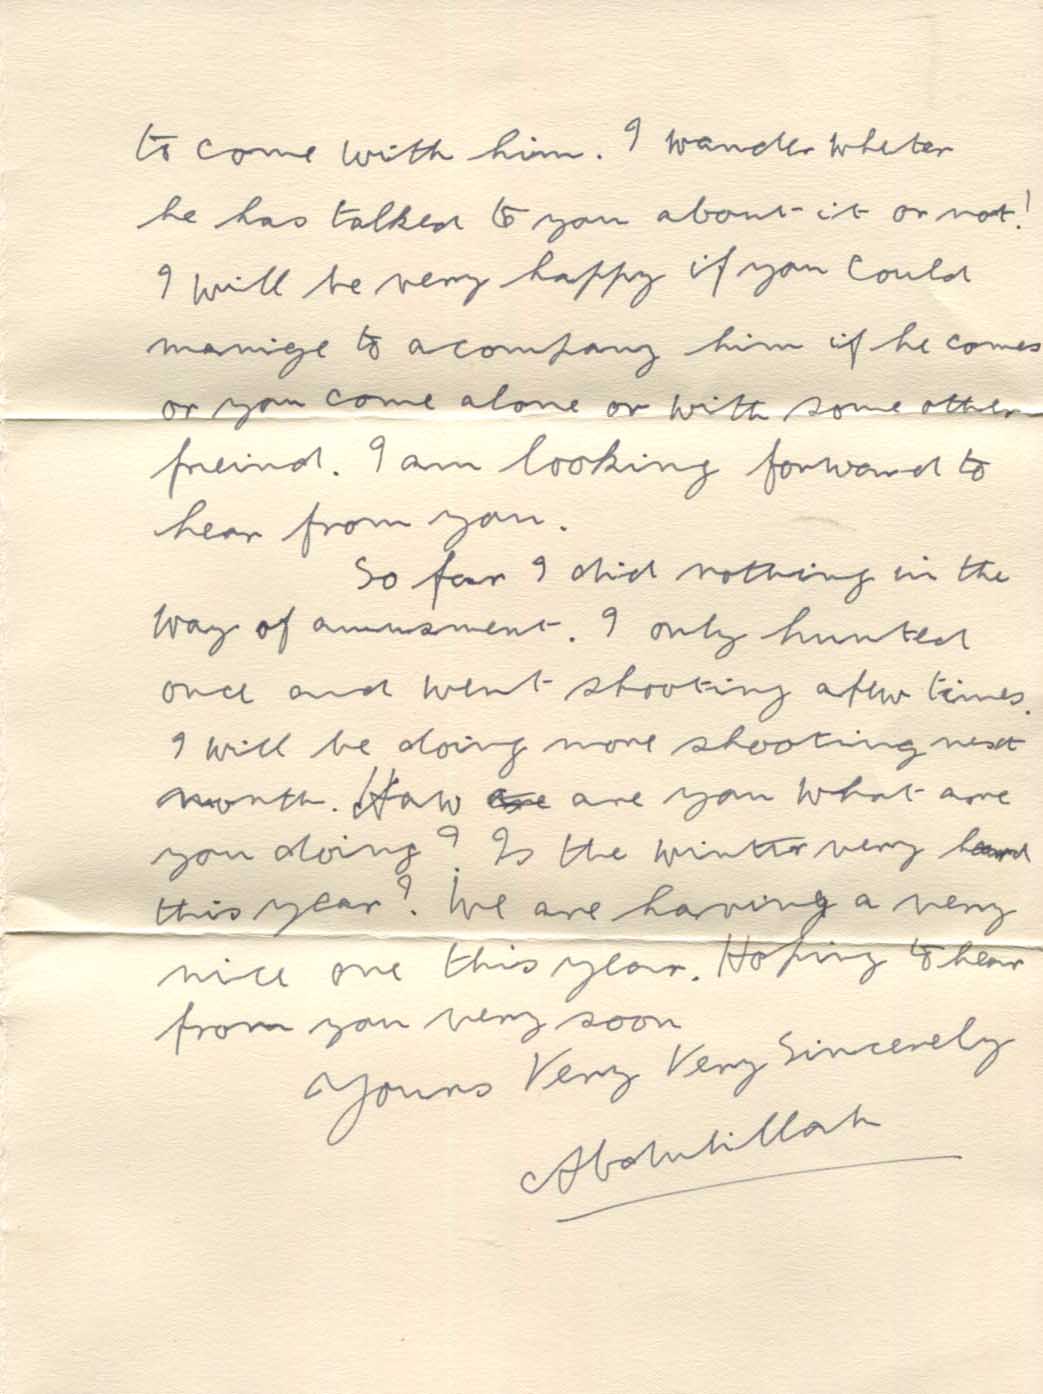 to come with him. I wander wheter
he has talked to you about it or not!
I will be very happy if you could
manige to acompany him if he comes
or you come alone or with some other
freind. I am looking forward to
hear from you.
So far I did nothing in the
way of amusment. I only hunted
once and went shooting a few times.
I will be doing more shooting next
month. How are are you what are
you doing? Is the winter very hard
this year? We are having a very
nice one this year. Hoping to hear
from you very soon
Yours Very Very Sincerely
Abdulillah